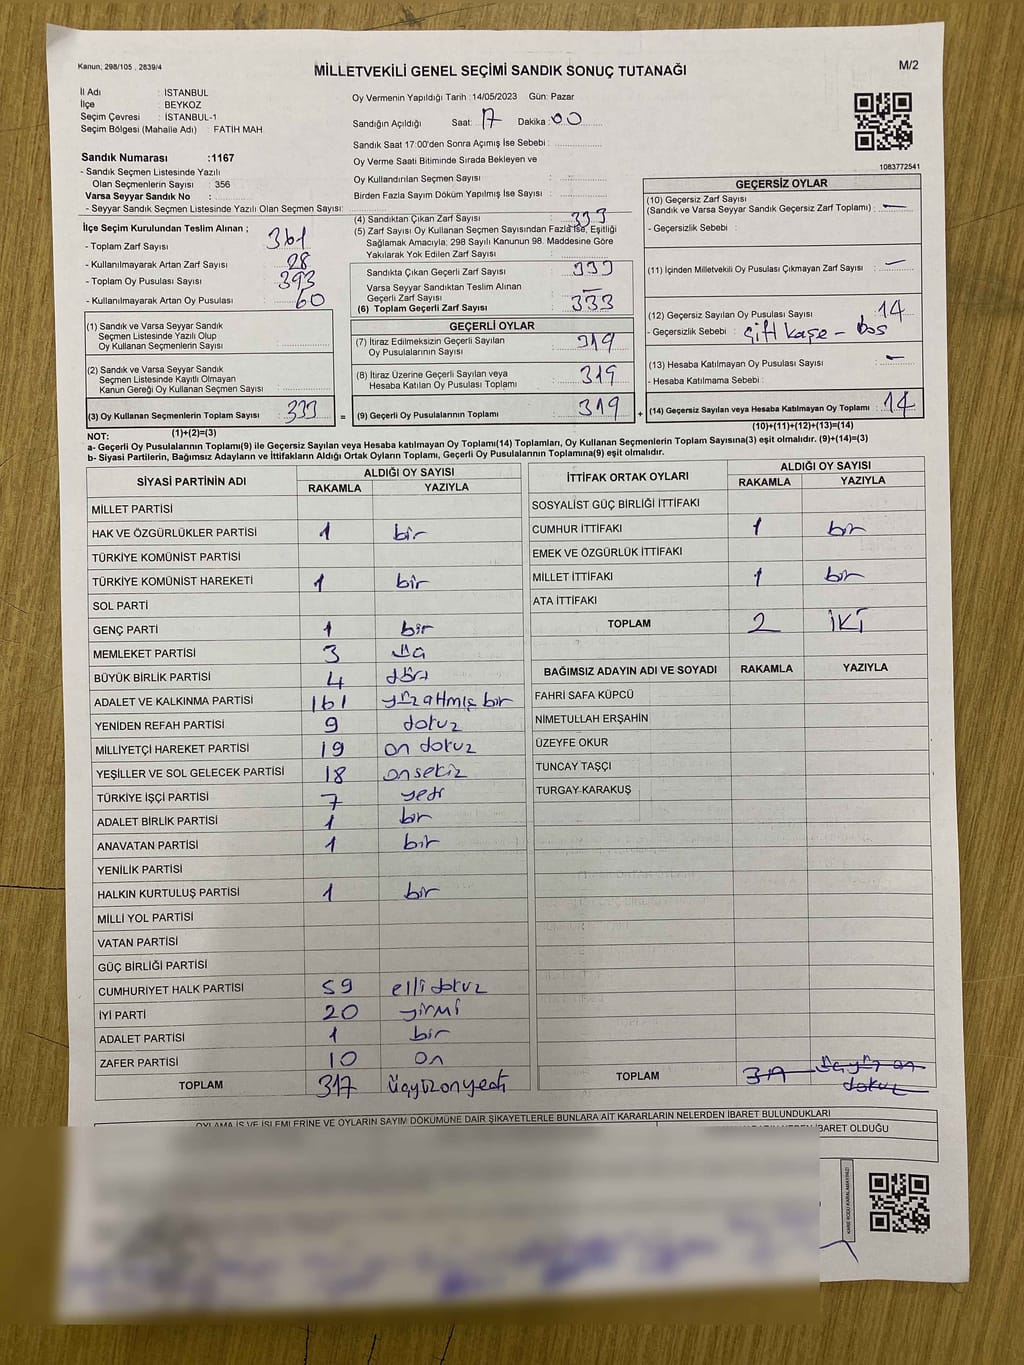 Kanun; 298/105 , 2839/4
MİLLETVEKİLİ GENEL SEÇİMİ SANDIK SONUÇ TUTANAĞI
M/2
İl Adı : İSTANBUL
İlçe : BEYKOZ
Seçim Çevresi : İSTANBUL-1
Seçim Bölgesi (Mahalle Adı) : FATİH MAH
Sandık Numarası :1167
- Sandık Seçmen Listesinde Yazılı
Olan Seçmenlerin Sayısı : 356
Varsa Seyyar Sandık No :
- Seyyar Sandık Seçmen Listesinde Yazılı Olan Seçmen Sayısı:
Oy Vermenin Yapıldığı Tarih :14/05/2023 Gün: Pazar
Sandığın Açıldığı Saat: 17 Dakika: 00
Sandık Saat 17:00'den Sonra Açımış İse Sebebi :
Oy Verme Saati Bitiminde Sırada Bekleyen ve
Oy Kullandırılan Seçmen Sayısı :
Birden Fazla Sayım Döküm Yapılmış İse Sayısı :
1083772541
İlçe Seçim Kurulundan Teslim Alınan ;
- Toplam Zarf Sayısı : 361
- Kullanılmayarak Artan Zarf Sayısı : 28
- Toplam Oy Pusulası : 393
- Kullanılmayarak Artan Oy Pusulası : 60
(1) Sandık ve Varsa Seyyar Sandık
Seçmen Listesinde Yazılı Olup
Oy Kullanan Seçmenlerin Sayısı :
(2) Sandık ve Varsa Seyyar Sandık
Seçmen Listesinde Kayıtlı Olmayan
Kanun Gereği Oy Kullanan Seçmen Sayısı :
(3) Oy Kullanan Seçmenlerin Toplam Sayısı : 333 =
(1)+(2)=(3)
(4) Sandıktan Çıkan Zarf Sayısı : 333
(5) Zarf Sayısı Oy Kullanan Seçmen Sayısından Fazla İse, Eşitliği
Sağlamak Amacıyla, 298 Sayılı Kanunun 98. Maddesine Göre
Yakılarak Yok Edilen Zarf Sayısı :
Sandıkta Çıkan Geçerli Zarf Sayısı : 333
Varsa Seyyar Sandıktan Teslim Alınan
Geçerli Zarf Sayısı : —
(6) Toplam Geçerli Zarf Sayısı : 333
GEÇERLİ OYLAR
(7) İtiraz Edilmeksizin Geçerli Sayılan
Oy Pusulalarının Sayısı : 319
(8) İtiraz Üzerine Geçerli Sayılan veya
Hesaba Katılan Oy Pusulası Toplamı : 319
(9) Geçerli Oy Pusulalarının Toplamı : 319 +
GEÇERSİZ OYLAR
(10) Geçersiz Zarf Sayısı
(Sandık ve Varsa Seyyar Sandık Geçersiz Zarf Toplamı) : —
- Geçersizlik Sebebi :
(11) İçinden Milletvekili Oy Pusulası Çıkmayan Zarf Sayısı : —
(12) Geçersiz Sayılan Oy Pusulası Sayısı : 14
- Geçersizlik Sebebi : Çift kaşe - boş
(13) Hesaba Katılmayan Oy Pusulası Sayısı : —
- Hesaba Katılmama Sebebi :
(14) Geçersiz Sayılan veya Hesaba Katılmayan Oy Toplamı : 14
(10)+(11)+(12)+(13)=(14)
NOT:
a- Geçerli Oy Pusulalarının Toplamı(9) ile Geçersiz Sayılan veya Hesaba katılmayan Oy Toplamı(14) Toplamları, Oy Kullanan Seçmenlerin Toplam Sayısına(3) eşit olmalıdır. (9)+(14)=(3)
b- Siyasi Partilerin, Bağımsız Adayların ve İttifakların Aldığı Ortak Oyların Toplamı, Geçerli Oy Pusulalarının Toplamına(9) eşit olmalıdır.
SİYASİ PARTİNİN ADI ALDIĞI OY SAYISI
RAKAMLA YAZIYLA
MİLLET PARTİSİ
HAK VE ÖZGÜRLÜKLER PARTİSİ 1 bir
TÜRKİYE KOMÜNİST PARTİSİ
TÜRKİYE KOMÜNİST HAREKETİ 1 bir
SOL PARTİ
GENÇ PARTİ 1 bir
MEMLEKET PARTİSİ 3 üç
BÜYÜK BİRLİK PARTİSİ 4 dört
ADALET VE KALKINMA PARTİSİ 161 yüzatmış bir
YENİDEN REFAH PARTİSİ 9 dokuz
MİLLİYETÇİ HAREKET PARTİSİ 19 on dokuz
YEŞİLLER VE SOL GELECEK PARTİSİ 18 onsekiz
TÜRKİYE İŞÇİ PARTİSİ 7 yedi
ADALET BİRLİK PARTİSİ 1 bir
ANAVATAN PARTİSİ 1 bir
YENİLİK PARTİSİ
HALKIN KURTULUŞ PARTİSİ 1 bir
MİLLİ YOL PARTİSİ
VATAN PARTİSİ
GÜÇ BİRLİĞİ PARTİSİ
CUMHURİYET HALK PARTİSİ 59 elli dokuz
İYİ PARTİ 20 yirmi
ADALET PARTİSİ 1 bir
ZAFER PARTİSİ 10 on
TOPLAM 317 üçyüzonyedi
İTTİFAK ORTAK OYLARI ALDIĞI OY SAYISI
RAKAMLA YAZIYLA
SOSYALİST GÜÇ BİRLİĞİ İTTİFAKI
CUMHUR İTTİFAKI 1 bir
EMEK VE ÖZGÜRLÜK İTTİFAKI
MİLLET İTTİFAKI 1 bir
ATA İTTİFAKI
TOPLAM 2 İKİ
BAĞIMSIZ ADAYIN ADI VE SOYADI RAKAMLA YAZIYLA
FAHRİ SAFA KÜPCÜ
NİMETULLAH ERŞAHİN
ÜZEYFE OKUR
TUNCAY TAŞÇI
TURGAY KARAKUŞ
TOPLAM 319 üçyüz on
dokuz
OYLAMA İŞ VE İŞLEMLERİNE VE OYLARIN SAYIM DÖKÜMÜNE DAİR ŞİKAYETLERLE BUNLARA AİT KARARLARIN NELERDEN İBARET BULUNDUKLARI
İBARET OLDUĞU